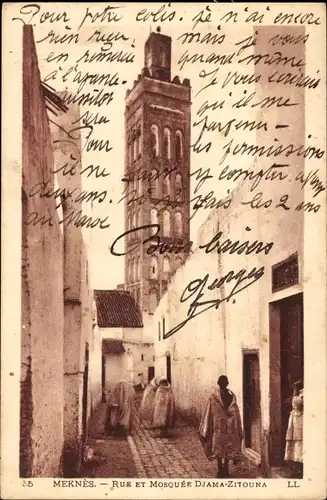 Pour votre colis. je n'ai encore
rien reçu mais je vous
en remercie quand même
à l'avance. Je vous écrirais
aussitôt qu'il me
sera parvenir
Pour les permissions
il ne faut pas y compter. ayant
deux ans. Ne fais les 2 ans
au Maroc
Bons baisers
Georges
55 MEKNÈS. — RUE ET MOSQUÉE DJAMA-ZITOUNA LL